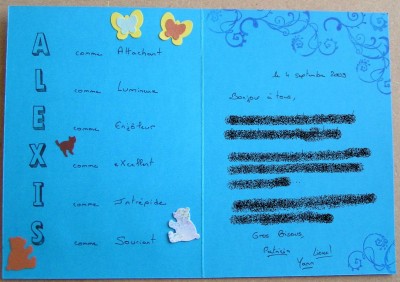 A comme Attachant
L comme Lumineux
E comme Enjôleur
X comme eXcellent
I comme Intrépide
S comme Souriant
Le 4 septembre 2009
Bonjour à tous,
Gros Bisous,
Patricia Lionel
Yann